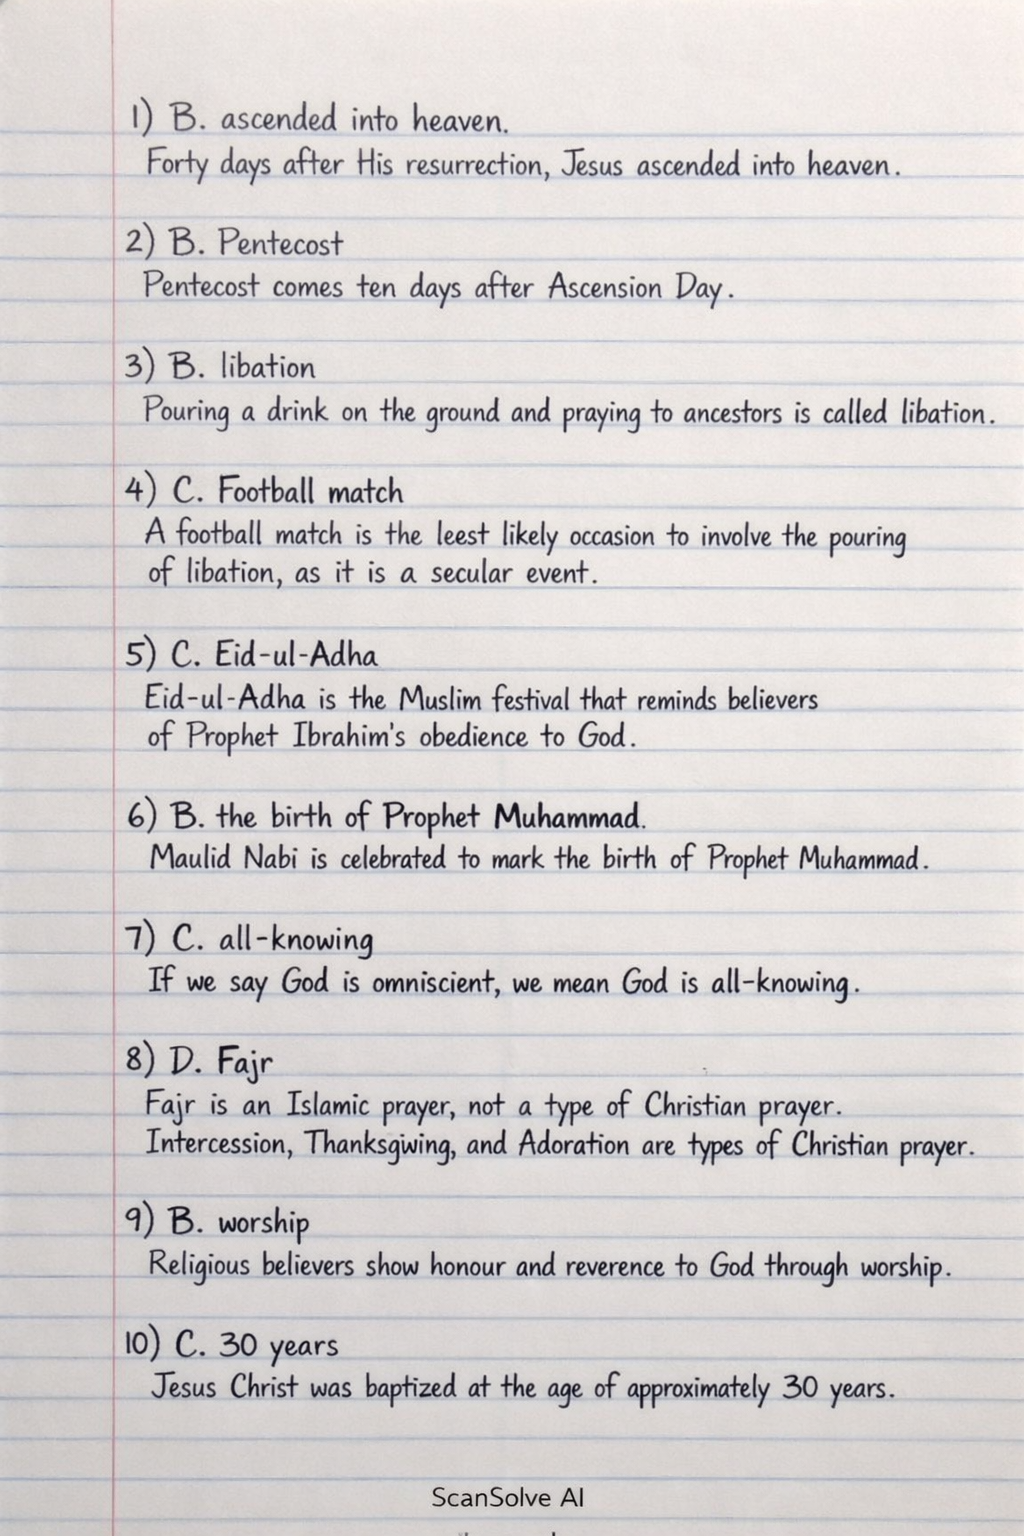 1) B. ascended into heaven.
Forty days after His resurrection, Jesus ascended into heaven.
2) B. Pentecost
Pentecost comes ten days after Ascension Day.
3) B. libation
Pouring a drink on the ground and praying to ancestors is called libation.
4) C. Football match
A football match is the leest likely occasion to involve the pouring
of libation, as it is a secular event.
5) C. Eid-ul-Adha
Eid-ul-Adha is the Muslim festival that reminds believers
of Prophet Ibrahim's obedience to God.
6) B. the birth of Prophet Muhammad.
Maulid Nabi is celebrated to mark the birth of Prophet Muhammad.
7) C. all-knowing
If we say God is omniscient, we mean God is all-knowing.
8) D. Fajr
Fajr is an Islamic prayer, not a type of Christian prayer.
Intercession, Thanksgiving, and Adoration are types of Christian prayer.
9) B. worship
Religious believers show honour and reverence to God through worship.
10) C. 30 years
Jesus Christ was baptized at the age of approximately 30 years.
ScanSolve AI